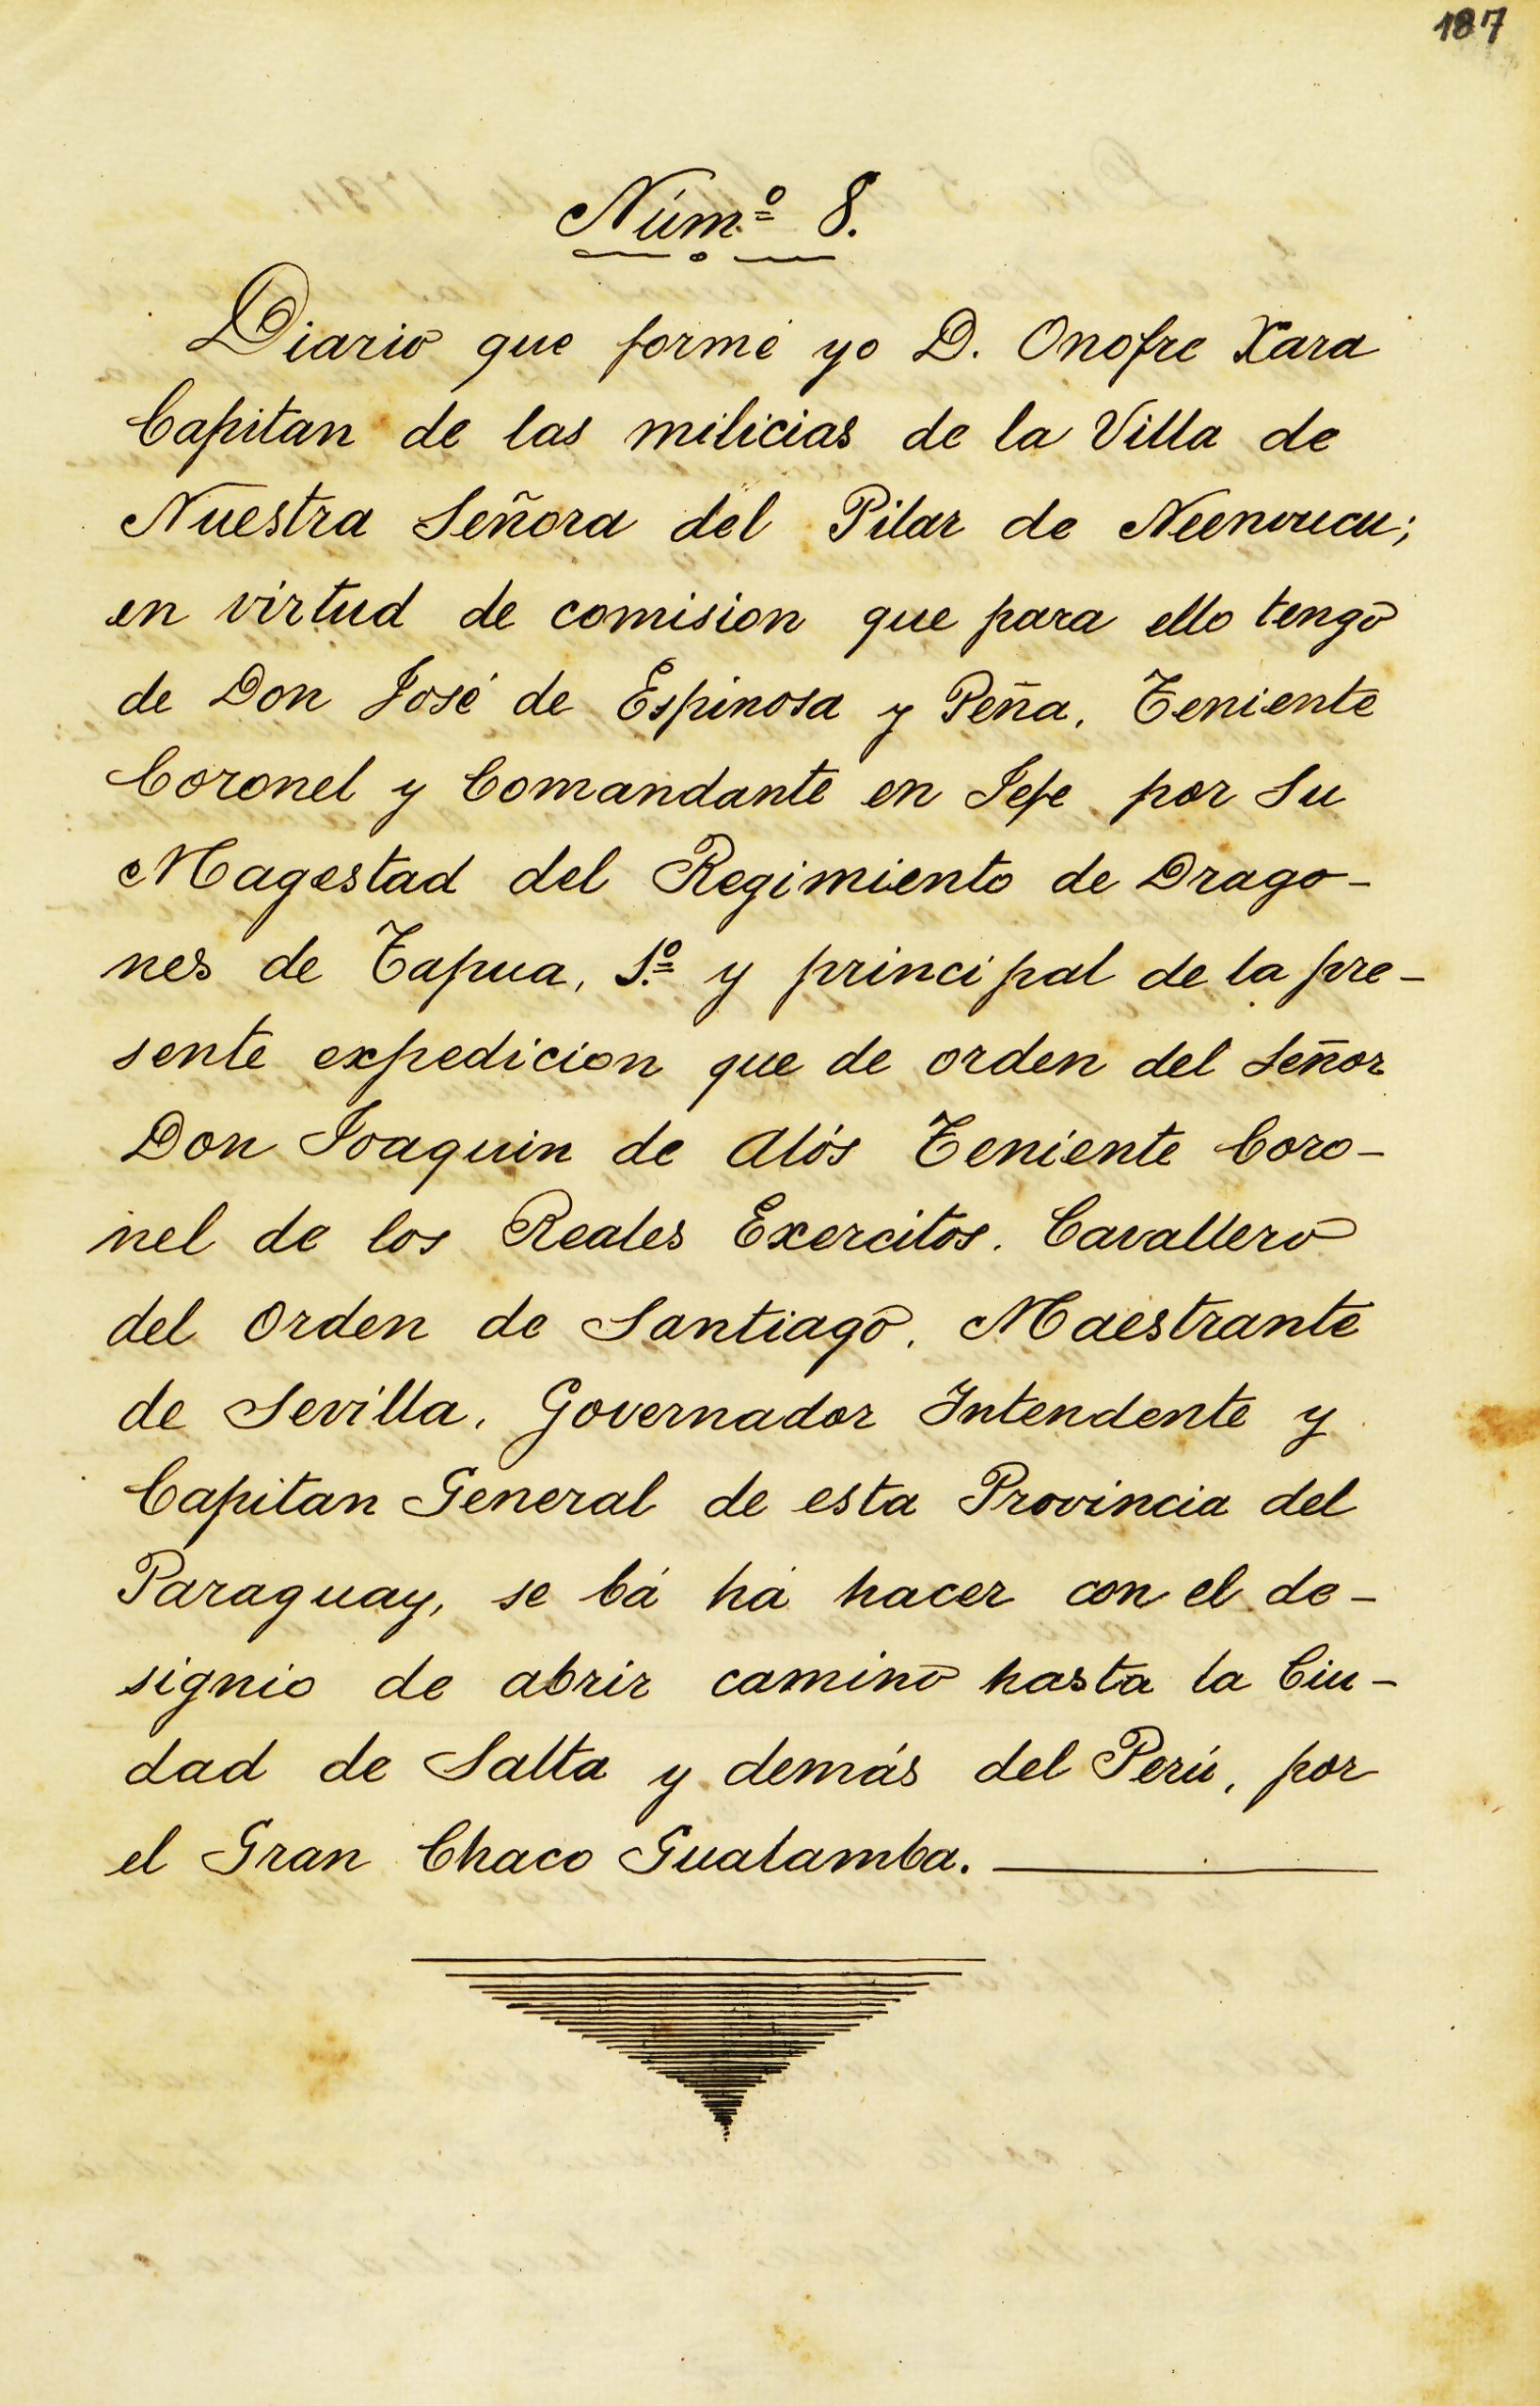 187
Núm.º 8.
Diario que formé yo D. Onofre Xara
Capitan de las milicias de la Villa de
Nuestra Señora del Pilar de Neenvucu;
en virtud de comision que para ello tengo
de Don José de Espinosa y Peña, Teniente
Coronel y Comandante en Jefe por Su
Magestad del Regimiento de Drago-
nes de Tapua, 1.º y principal de la pre-
sente expedicion que de orden del Señor
Don Joaquin de Alós Teniente Coro-
nel de los Reales Exercitos. Cavallero
del Orden de Santiago, Maestrante
de Sevilla, Governador Intendente y
Capitan General de esta Provincia del
Paraguay, se bá há hacer con el de-
signio de abrir camino hasta la Ciu-
dad de Salta y demás del Perú, por
el Gran Chaco Gualamba.